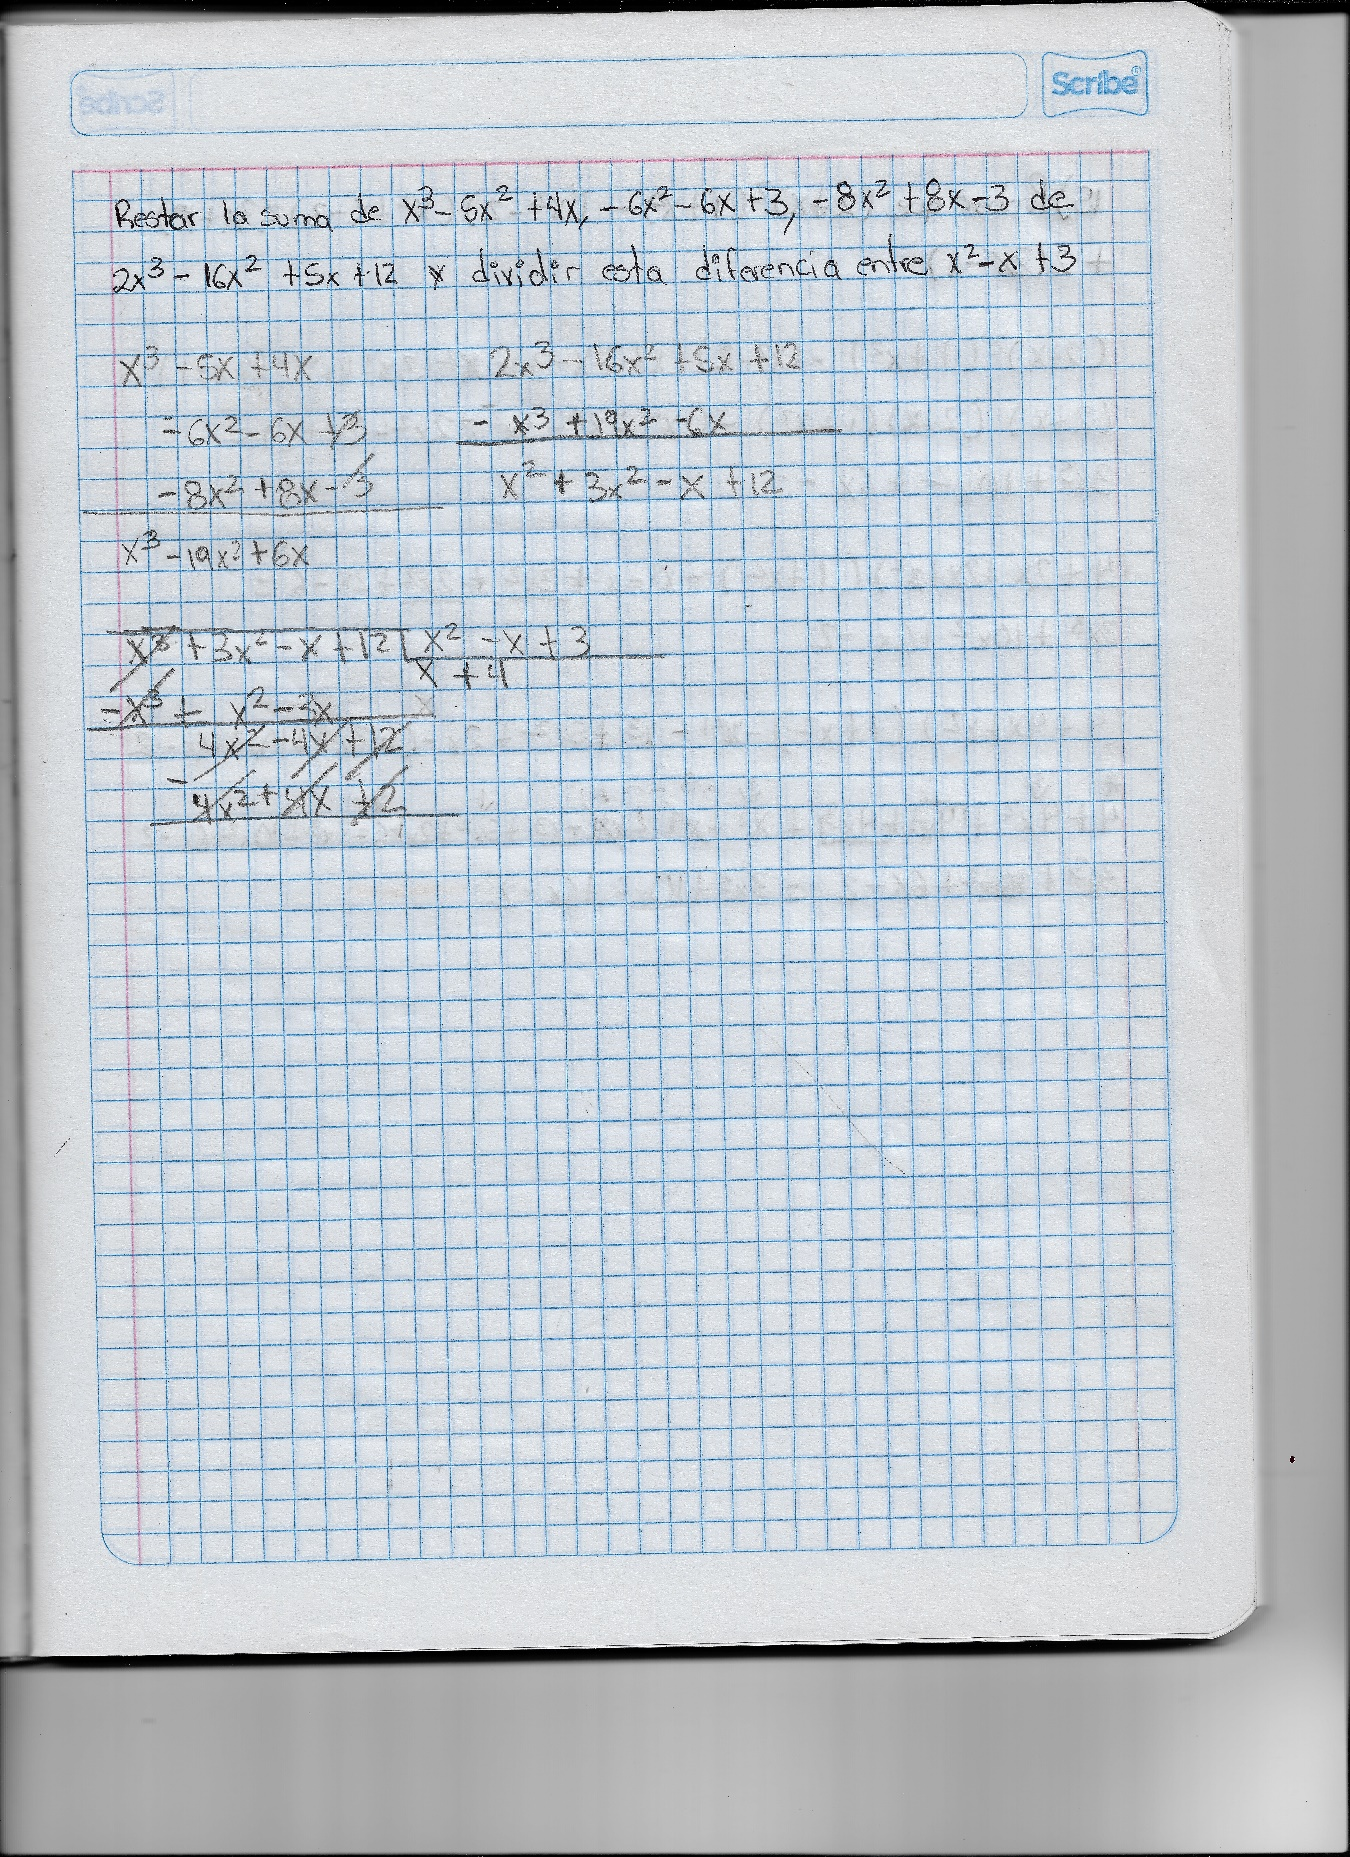 Scribe
Restar la suma de x³ - 5x² + 4x, - 6x² - 6x + 3, - 8x² + 8x - 3 de
2x³ - 16x² + 5x + 12 y dividir esta diferencia entre x² - x + 3
x³ - 5x + 4x
- 6x² - 6x + 3
- 8x² + 8x - 3
x³ - 19x² + 6x
2x³ - 16x² + 5x + 12
- x³ + 19x² - 6x
x² + 3x² - x + 12
x³ + 3x² - x + 12 | x² - x + 3
x + 4
- x³ + x² - 3x
4x² - 4x + 12
- 4x² + 4x - 12